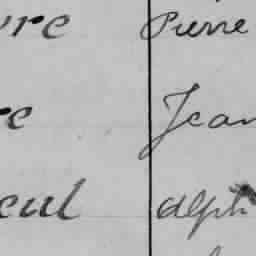 vre Pierre
re Jean
eul Alph